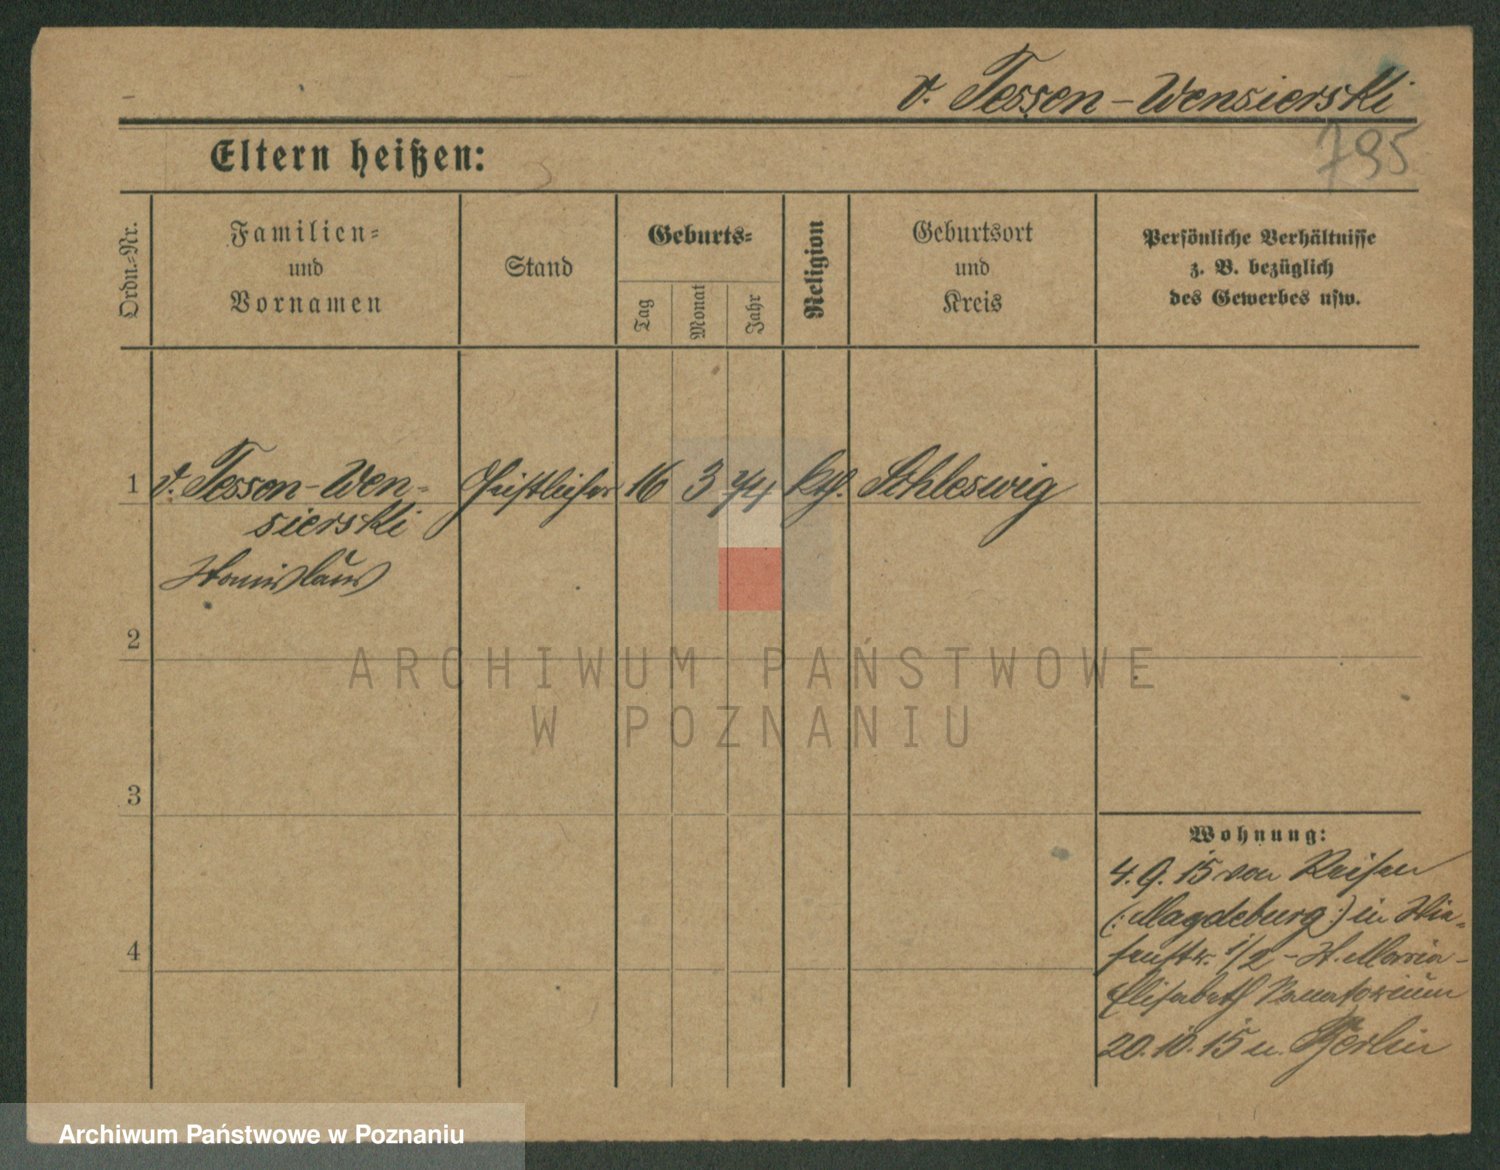 v. Tessen-Wensierski
795
Eltern heißen:
Ordn.-Nr.
Familien-
und
Vornamen
Stand
Geburts-
Tag
Monat
Jahr
Religion
Geburtsort
und
Kreis
Persönliche Verhältnisse
z. B. bezüglich
des Gewerbes usw.
1 v. Tessen-Wen- Geistlicher 16 3 74 kth. Schleswig
sierski
Stanislaus
2
ARCHIWUM PAŃSTWOWE
W POZNANIU
3
Wohnung:
4.9.15 von Reisen
(: Magdeburg :) in
1/2 - St. Maria-
4
Elisabeth Sanatorium
20.10.15 n. Berlin
Archiwum Państwowe w Poznaniu